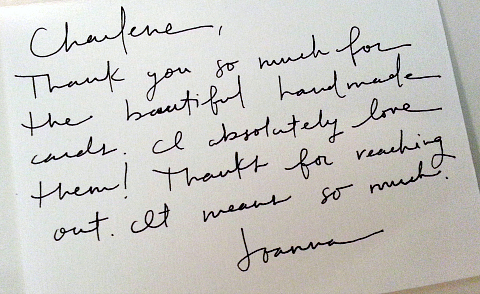 Charlene,
Thank you so much for
the beautiful handmade
cards. I absolutely love
them! Thanks for reaching
out. It means so much.
Joanna